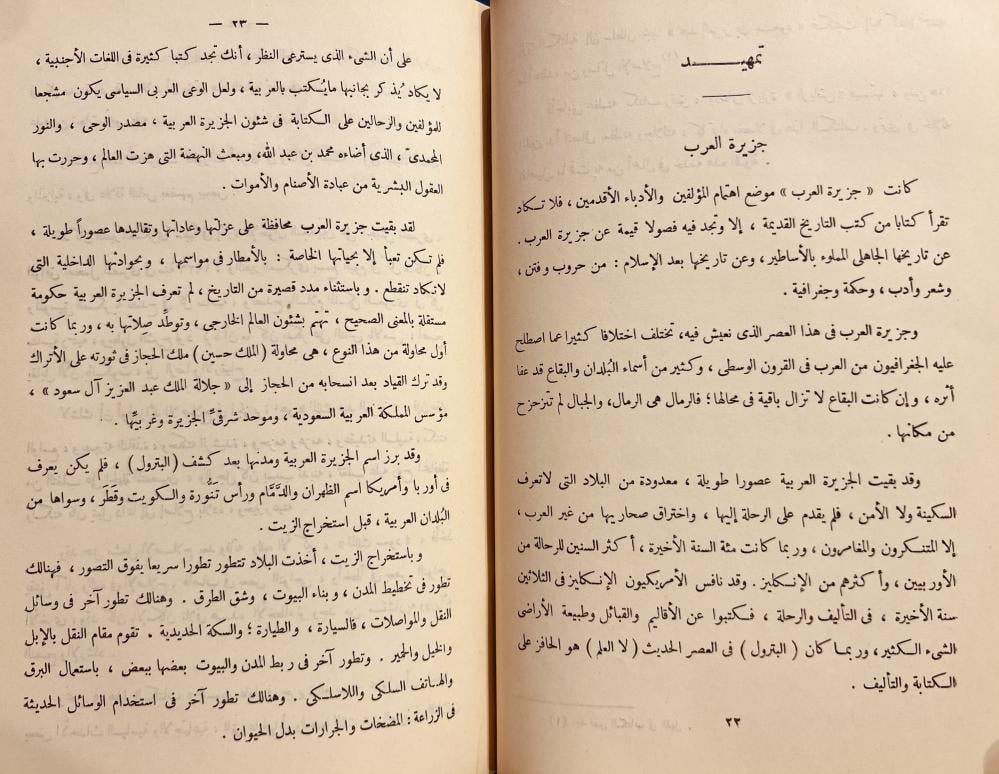 تمهيـــــد
جزيرة العرب
كانت « جزيرة العرب » موضع اهتمام المؤلفين والأدباء الأقدمين ، فلا تكاد
تقرأ كتابا من كتب التاريخ القديمة ، إلا وتجد فيه فصولا قيمة عن جزيرة العرب .
عن تاريخها الجاهلى المملوء بالأساطير ، وعن تاريخها بعد الإسلام : من حروب وفتن ،
وشعر وأدب ، وحكمة وجغرافية .
وجزيرة العرب فى هذا العصر الذى نعيش فيه، تختلف اختلافا كثيرا عما اصطلح
عليه الجغرافيون من العرب فى القرون الوسطى ، وكثير من أسماء البُلدان والبقاع قد عفا
أثره ، وإن كانت البقاع لا تزال باقية فى محالها ؛ فالرمال هى الرمال، والجبال لم تتزحزح
من مكانها .
وقد بقيت الجزيرة العربية عصورا طويلة ، معدودة من البلاد التى لاتعرف
السكينة ولا الأمن ، فلم يقدم على الرحلة إليها ، واختراق صحاريها من غير العرب ،
إلا المتنكرون والمغامرون ، وربما كانت مئة السنة الأخيرة ، أكثر السنين للرحالة من
الأوربيين ، وأكثرهم من الإنكليز . وقد نافس الأمريكيون الإنكليز فى الثلاثين
سنة الأخيرة ، فى التأليف والرحلة ، فكتبوا عن الأقاليم والقبائل وطبيعة الأراضى
الشىء الكثير، وربما كان ( البترول ) فى العصر الحديث ( لا العلم ) هو الحافز على
الكتابة والتأليف .
٢٢
— ٢٣ —
على أن الشىء الذى يسترعى النظر ، أنك تجد كتبا كثيرة فى اللغات الأجنبية ،
لا يكاد يُذكر بجانبها مايُكتب بالعربية ، ولعل الوعى العربى السياسى يكون مشجعا
للمؤلفين والرحالين على الكتابة فى شئون الجزيرة العربية ، مصدر الوحى ، والنور
المحمدىّ ، الذى أضاءه محمد بن عبد الله، ومبعث النهضة التى هزت العالم ، وحررت بها
العقول البشرية من عبادة الأصنام والأموات .
لقد بقيت جزيرة العرب محافظة على عزلتها وعاداتها وتقاليدها عصوراً طويلة ،
فلم تكن تعبأ إلا بحياتها الخاصة : بالأمطار فى مواسمها ، وبحوادثها الداخلية التى
لاتكاد تنقطع . وباستثناء مدد قصيرة من التاريخ ، لم تعرف الجزيرة العربية حكومة
مستقلة بالمعنى الصحيح ، تهتمّ بشئون العالم الخارجى ، وتوطِّد صِلاتها به ، وربما كانت
أول محاولة من هذا النوع ، هى محاولة (الملك حسين) ملك الحجاز فى ثورته على الأتراك
وقد ترك القياد بعد انسحابه من الحجاز إلى « جلالة الملك عبد العزيز آل سعود » ،
مؤسس المملكة العربية السعودية ، وموحد شرقىِّ الجزيرة وغربيِّها .
وقد برز اسم الجزيرة العربية ومدنها بعد كشف (البترول) ، فلم يكن يعرف
فى أوربا وأمريكا اسم الظهران والدَّمَّام ورأس تَنُّورة والكويت وقَطَر ، وسواها من
البُلدان العربية ، قبل استخراج الزيت .
وباستخراج الزيت ، أخذت البلاد تتطور تطورا سريعا يفوق التصور ، فهنالك
تطور فى تخطيط المدن ، وبناء البيوت ، وشق الطرق . وهنالك تطور آخر فى وسائل
النقل والمواصلات ، فالسيارة ، والطيارة ؛ والسكة الحديدية . تقوم مقام النقل بالإبل
والخيل والحمير . وتطور آخر فى ربط المدن والبيوت بعضها ببعض ، باستعمال البرق
والهاتف السلكى واللاسلكى . وهنالك تطور آخر فى استخدام الوسائل الحديثة
فى الزراعة : المضخات والجرارات بدل الحيوان .